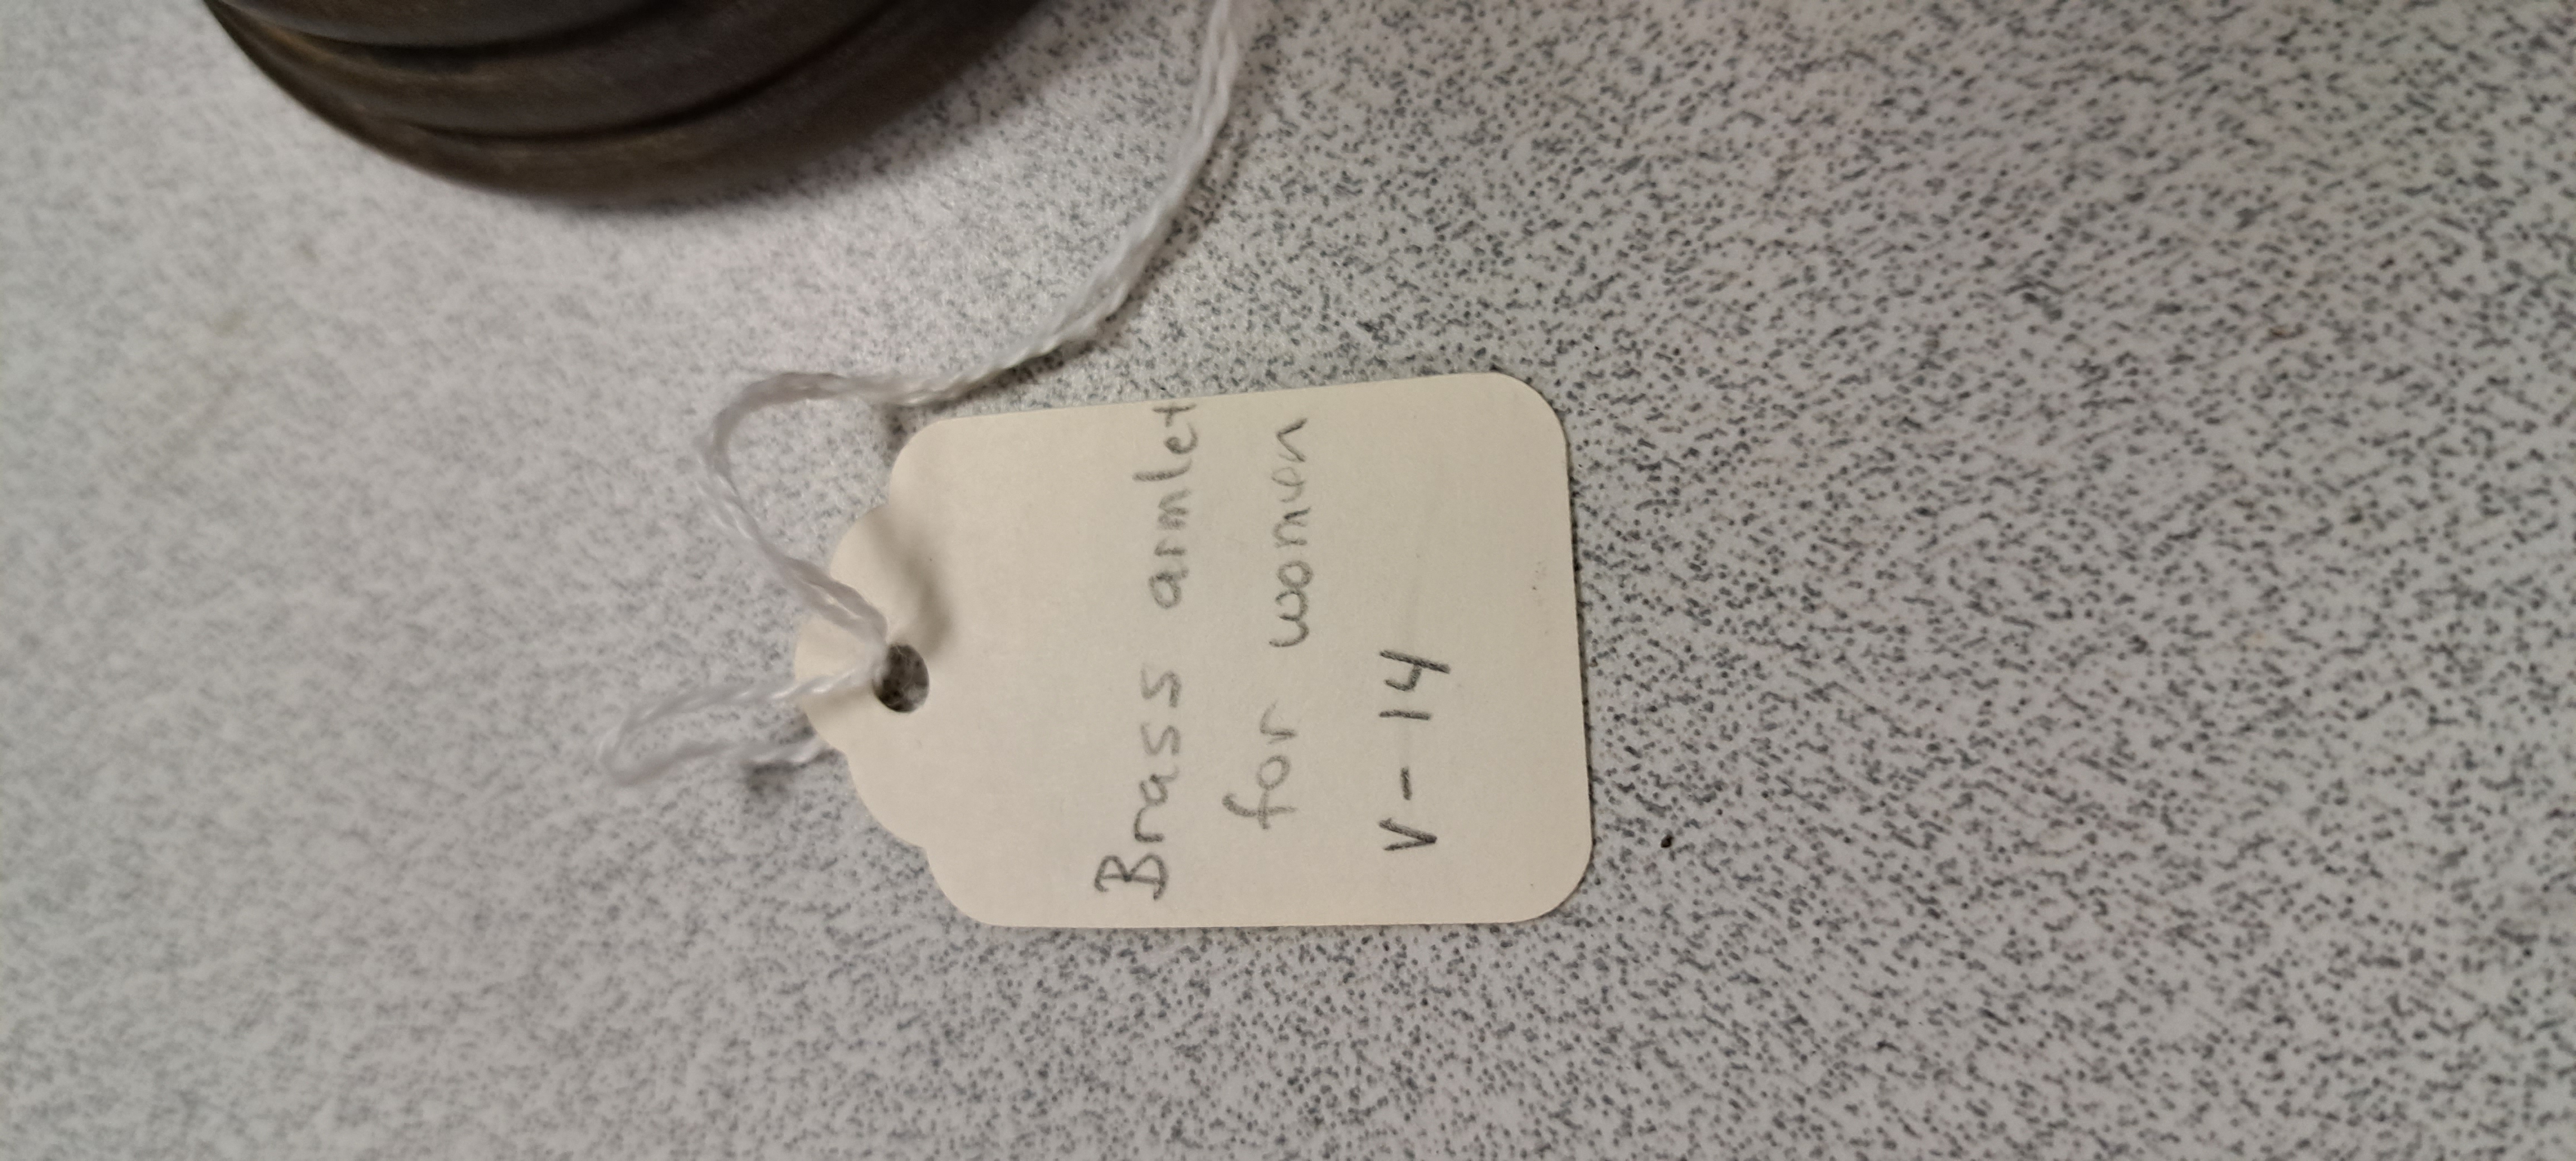 Brass armlet
for women
V-14